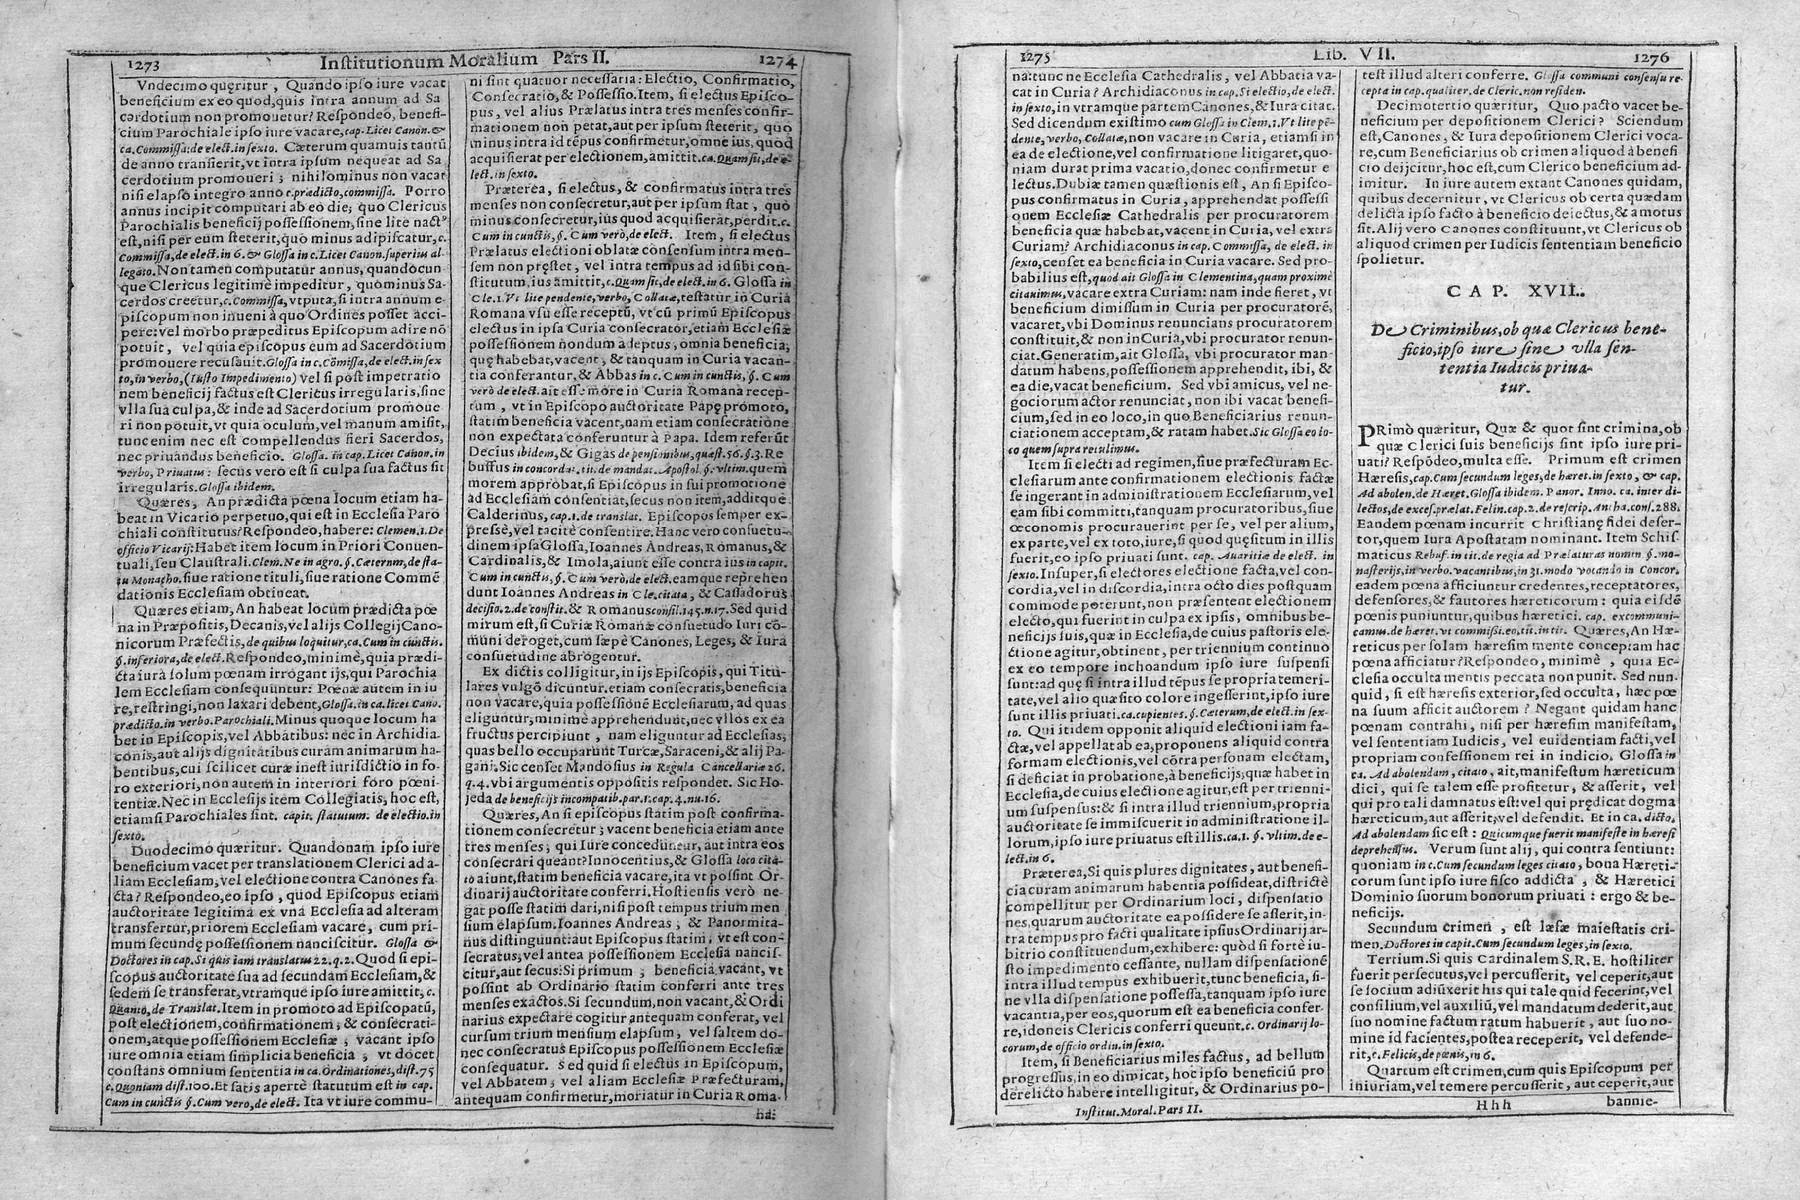 1273
Institutionum Moralium Pars II.
1274
Vndecimo quęritur, Quando ipso iure vacat
beneficium ex eo quod, quis intra annum ad Sa
cerdotium non promouetur? Respondeo, benefi-
cium Parochiale ipso iure vacare, cap. Licet Canon. &
ca. Commissa: de elect. in sexto. Cæterum quamuis tantũ
de anno transierit, vt intra ipsum nequeat ad Sa
cerdotium promoueri; nihilominus non vacat
nisi elapso integro anno c. prædicto, commissa. Porro
annus incipit computari ab eo die, quo Clericus
Parochialis beneficij possessionem, sine lite nact⁹
est, nisi per eum steterit, quò minus adipiscatur, c.
Commissa, de elect. in 6. & Glossa in c. Licet Canon. superius al-
legato. Non tamen computatur annus, quandocun
que Clericus legitimè impeditur, quominus Sa-
cerdos creetur, c. Commissa, vtputa, si intra annum e-
piscopum non inueni à quo Ordines posset acci-
pere: vel morbo præpeditus Episcopum adire nõ
potuit, vel quia episcopus eum ad Sacerdotium
promouere recusauit. Glossa in c. Cõmissa, de elect. in sex
to, in verbo, (Iusto Impedimento) vel si post impetratio
nem beneficij factus est Clericus irregularis, sine
vlla sua culpa, & inde ad Sacerdotium promoue
ri non potuit, vt quia oculum, vel manum amisit,
tunc enim nec est compellendus fieri Sacerdos,
nec priuandus beneficio. Glossa. in cap. Licet Canon. in
verbo, Priuatus: secus verò est si culpa sua factus sit
irregularis. Glossa ibidem.
Quæres, An prædicta pœna locum etiam ha-
beat in Vicario perpetuo, qui est in Ecclesia Paro
chiali constitutus? Respondeo, habere: Clemen. 1. De
officio Vicarij: Habet item locum in Priori Conuen-
tuali, seu Claustrali. Clem. Ne in agro. §. Cæterum, de sta-
tu Monacho. siue ratione tituli, siue ratione Commẽ
dationis Ecclesiam obtineat.
Quæres etiam, An habeat locum prædicta pœ
na in Præpositis, Decanis, vel alijs Collegij Cano-
nicorum Præfectis, de quibus loquitur, ca. Cum in cunctis.
§. inferiora, de elect. Respondeo, minimè, quia prædi-
cta iura solum pœnam irrogant ijs, qui Parochia
lem Ecclesiam consequuntur: Pœnæ autem in iu
re, restringi, non laxari debent, Glossa. in ca. licet Cano.
prædicto. in verbo. Parochiali. Minus quoque locum ha
bet in Episcopis, vel Abbatibus: nec in Archidia-
conis, aut alijs dignitatibus curam animarum ha-
bentibus, cui scilicet curæ inest iurisdictio in fo-
ro exteriori, non autem in interiori foro pœni-
tentiæ. Nec in Ecclesijs item Collegiatis, hoc est,
etiamsi Parochiales sint. capit. statutum. de electio. in
sexto.
Duodecimo quæritur. Quandonam ipso iure
beneficium vacet per translationem Clerici ad a-
liam Ecclesiam, vel electione contra Canones fa-
cta? Respondeo, eo ipso, quod Episcopus etiam
auctoritate legitima ex vna Ecclesia ad alteram
transfertur, priorem Ecclesiam vacare, cum pri-
mum secundę possessionem nanciscitur. Glossa &
Doctores in cap. Si quis iam translatus 22. q. 2. Quod si epi-
scopus auctoritate sua ad secundam Ecclesiam, &
sedem se transferat, vtramque ipso iure amittit, c.
Quanto, de Translat. Item in promoto ad Episcopatũ,
post electionem, confirmationem, & consecrati-
onem, atque possessionem Ecclesiæ, vacant ipso
iure omnia etiam simplicia beneficia, vt docet
constans omnium sententia in ca. Ordinationes, dist. 75
c. Quoniam dist. 100. Et satis apertè statutum est in cap.
Cum in cunctis §. Cum vero, de elect. Ita vt iure commu-
ni sint quatuor necessaria: Electio, Confirmatio,
Consecratio, & Possessio. Item, si electus Episco-
pus, vel alius Prælatus intra tres menses confir-
mationem non petat, aut per ipsum steterit, quo
minus intra id tẽpus confirmetur, omne ius, quod
acquisierat per electionem, amittit. ca. Quam sit, de e-
lect. in sexto.
Præterea, si electus, & confirmatus intra tres
menses non consecretur, aut per ipsum stat, quò
minus consecretur, ius quod acquisierat, perdit. c.
Cum in cunctis, §. Cum verò, de elect. Item, si electus
Prælatus electioni oblatæ consensum intra men-
sem non pręstet, vel intra tempus ad id sibi con-
stitutum, ius amittit, c. Quam sit, de elect. in 6. Glossa in
Cle. 1. Vt lite pendente, verbo, Collatæ, testatur in Curia
Romana vsu esse receptũ, vt cũ primũ Episcopus
electus in ipsa Curia consecrator, etiam Ecclesiæ
possessionem nondum adeptus, omnia beneficia,
quę habebat, vacent, & tanquam in Curia vacan-
tia conferantur, & Abbas in c. Cum in cunctis, §. Cum
verò de elect. ait esse more in Curia Romana recep-
tum, vt in Episcopo auctoritate Papę promoto,
statim beneficia vacent, nam etiam consecratione
non expectata conferuntur à Papa. Idem referũt
Decius ibidem, & Gigas de pensionibus, quæst. 56. §. 3. Re
buffus in concordat. tit. de mandat. Apostol. §. vltim. quem
morem approbat, si Episcopus in sui promotione
ad Ecclesiam consentiat, secus non item, additque
Calderinus, cap. 1. de translat. Episcopos semper ex-
pressè, vel tacitè consentire. Hanc vero consuetu-
dinem ipsa Glossa, Ioannes Andreas, Romanus, &
Cardinalis, & Imola, aiunt esse contra ius in capit.
Cum in cunctis, §. Cum verò, de elect. eamque reprehen
dunt Ioannes Andreas in Cle. citata, & Cassadorus
decisio. 2. de constit. & Romanus consil. 145. n. 17. Sed quid
mirum est, si Curiæ Romanæ consuetudo Iuri cõ-
muni deroget, cum sæpè Canones, Leges, & Iura
consuetudine abrogentur.
Ex dictis colligitur, in ijs Episcopis, qui Titu-
lares vulgò dicuntur, etiam consecratis, beneficia
non vacare, quia possessionẽ Ecclesiarum, ad quas
eliguntur, minimè apprehendunt, nec vllos ex ea
fructus percipiunt, nam eliguntur ad Ecclesias,
quas bello occuparunt Turcæ, Saraceni, & alij Pa-
gani. Sic censet Mandosius in Regula Cancellariæ 26.
q. 4. vbi argumentis oppositis respondet. Sic Ho-
jeda de beneficijs incompatib. par. 1. cap. 4. nu. 16.
Quæres, An si episcopus statim post confirma-
tionem consecretur, vacent beneficia etiam ante
tres menses, qui Iure conceduntur, aut intra eos
consecrari queant? Innocentius, & Glossa loco cita-
to aiunt, statim beneficia vacare, ita vt possint Or-
dinarij auctoritate conferri. Hostiensis verò ne-
gat posse statim dari, nisi post tempus trium men
sium elapsum. Ioannes Andreas, & Panormita-
nus distinguunt: aut Episcopus statim, vt est con-
secratus, vel antea possessionem Ecclesiæ nancis-
citur, aut secus: Si primum, beneficia vacant, vt
possint ab Ordinario statim conferri ante tres
menses exactos. Si secundum, non vacant, & Ordi
narius expectare cogitur antequam conferat, vel
cursum trium mensium elapsum, vel saltem do-
nec consecratus Episcopus possessionem Ecclesiæ
consequatur. Sed quid si electus in Episcopum,
vel Abbatem, vel aliam Ecclesiæ Præfecturam,
antequam confirmetur, moriatur in Curia Roma-
na:
1275
Lib. VII.
1276
na: tunc ne Ecclesia Cathedralis, vel Abbatia va-
cat in Curia? Archidiaconus in cap. Si electio, de elect.
in sexto, in vtramque partem Canones, & Iura citat.
Sed dicendum existimo cum Glossa in Clem. 1. Vt lite pẽ-
dente, verbo, Collatæ, non vacare in Curia, etiamsi in
ea de electione, vel confirmatione litigaret, quo-
niam durat prima vacatio, donec confirmetur e
lectus. Dubiæ tamen quæstionis est, An si Episco-
pus confirmatus in Curia, apprehendat possessi
onem Ecclesiæ Cathedralis per procuratorem
beneficia quæ habebat, vacent in Curia, vel extra
Curiam? Archidiaconus in cap. Commissa, de elect. in
sexto, censet ea beneficia in Curia vacare. Sed pro-
babilius est, quod ait Glossa in Clementina, quam proximè
citauimus, vacare extra Curiam: nam inde fieret, vt
beneficium dimissum in Curia per procuratorẽ,
vacaret, vbi Dominus renuncians procuratorem
constituit, & non in Curia, vbi procurator renun-
ciat. Generatim, ait Glossa, vbi procurator man-
datum habens, possessionem apprehendit, ibi, &
ea die, vacat beneficium. Sed vbi amicus, vel ne-
gociorum actor renunciat, non ibi vacat benefi-
cium, sed in eo loco, in quo Beneficiarius renun-
ciationem acceptam, & ratam habet. Sic Glossa eo lo-
co quem supra retulimus.
Item si electi ad regimen, siue præfecturam Ec-
clesiarum ante confirmationem electionis factæ
se ingerant in administrationem Ecclesiarum, vel
eam sibi committi, tanquam procuratoribus, siue
œconomis procurauerint per se, vel per alium,
ex parte, vel ex toto, iure, si quod quęsitum in illis
fuerit, eo ipso priuati sunt. cap. Auaritiæ de elect. in
sexto. Insuper, si electores electione facta, vel con-
cordia, vel in discordia, intra octo dies postquam
commode poterunt, non præsentent electionem
electo, qui fuerint in culpa ex ipsis, omnibus be-
neficijs suis, quæ in Ecclesia, de cuius pastoris ele-
ctione agitur, obtinent, per triennium continuo
ex eo tempore inchoandum ipso iure suspensi
sunt: ad quę si intra illud tẽpus se propria temeri-
tate, vel alio quæsito colore ingesserint, ipso iure
sunt illis priuati. ca. cupientes. §. Cæterum, de elect. in sex-
to. Qui itidem opponit aliquid electioni iam fa-
ctæ, vel appellat ab ea, proponens aliquid contra
formam electionis, vel cõtra personam electam,
si deficiat in probatione, à beneficijs, quæ habet in
Ecclesia, de cuius electione agitur, est per trienni-
um suspensus: & si intra illud triennium, propria
auctoritate se immiscuerit in administratione il-
lorum, ipso iure priuatus est illis. ca. 1. §. vltim. de e-
lect. in 6.
Præterea, Si quis plures dignitates, aut benefi-
cia curam animarum habentia possideat, districtè
compellitur per Ordinarium loci, dispensatio
nes, quarum auctoritate ea possidere se asserit, in-
tra tempus pro facti qualitate ipsius Ordinarij ar-
bitrio constituendum, exhibere: quòd si fortè iu-
sto impedimento cessante, nullam dispensationẽ
intra illud tempus exhibuerit, tunc beneficia, si-
ne vlla dispensatione possessa, tanquam ipso iure
vacantia, per eos, quorum est ea beneficia confer-
re, idoneis Clericis conferri queunt. c. Ordinarij lo-
corum, de officio ordin. in sexto.
Item, si Beneficiarius miles factus, ad bellum
progressus, in eo dimicat, hoc ipso beneficiũ pro
derelicto habere intelligitur, & Ordinarius po-
test illud alteri conferre. Glossa communi consensu re-
cepta in cap. qualiter. de Cleric. non residen.
Decimotertio quæritur, Quo pacto vacet be-
neficium per depositionem Clerici? Sciendum
est, Canones, & Iura depositionem Clerici voca-
re, cum Beneficiarius ob crimen aliquod à benefi
cio deijcitur, hoc est, cum Clerico beneficium ad-
imitur. In iure autem extant Canones quidam,
quibus decernitur, vt Clericus ob certa quædam
delicta ipso facto à beneficio deiectus, & amotus
sit. Alij vero Canones constituunt, vt Clericus ob
aliquod crimen per Iudicis sententiam beneficio
spolietur.
CAP. XVII.
De Criminibus, ob quæ Clericus bene-
ficio, ipso iure sine vlla sen-
tentia Iudicis priua-
tur.
PRimò quæritur, Quæ & quot sint crimina, ob
quæ Clerici suis beneficijs sint ipso iure pri-
uati? Respõdeo, multa esse. Primum est crimen
Hæresis, cap. Cum secundum leges, de hæret. in sexto, & cap.
Ad abolen. de Hæret. Glossa ibidem. Panor. Inno. ca. inter di-
lectos, de excess. prælat. Felin. cap. 2. de rescrip. Ancha. cons. 288.
Eandem pœnam incurrit Christianę fidei deser-
tor, quem Iura Apostatam nominant. Item Schis
maticus Rebuf. in tit. de regia ad Prælaturas nomin §. mo-
nasterijs, in verbo. vacantibus, in 31. modo vocando in Concor.
eadem pœna afficiuntur credentes, receptatores,
defensores, & fautores hæreticorum: quia eisdẽ
pœnis puniuntur, quibus hæretici. cap. excommuni-
camus. de hæret. vt commißi. eo. tit. in tit. Quæres, An Hæ-
reticus per solam hæresim mente conceptam hac
pœna afficiatur? Respondeo, minimè, quia Ec-
clesia occulta mentis peccata non punit. Sed nun-
quid, si est hæresis exterior, sed occulta, hæc pœ
na suum afficit auctorem? Negant quidam hanc
pœnam contrahi, nisi per hæresim manifestam,
vel sententiam Iudicis, vel euidentiam facti, vel
propriam confessionem rei in indicio. Glossa in
ca. Ad abolendam, citato, ait, manifestum hæreticum
dici, qui se talem esse profitetur, & asserit, vel
qui pro tali damnatus est: vel qui prędicat dogma
hæreticum, aut asserit, vel defendit. Et in ca. dicto.
Ad abolendam sic est: Quicumque fuerit manifeste in hæresi
deprehensus. Verum sunt alij, qui contra sentiunt:
quoniam in c. Cum secundum leges citato, bona Hæreti-
corum sunt ipso iure fisco addicta, & Hæretici
Dominio suorum bonorum priuati: ergo & be-
neficijs.
Secundum crimen, est læsæ maiestatis cri-
men. Doctores in capit. Cum secundum leges, in sexto.
Tertium. Si quis Cardinalem S. R. E. hostiliter
fuerit persecutus, vel percusserit, vel ceperit, aut
se socium adiũxerit his qui tale quid fecerint, vel
consilium, vel auxiliũ, vel mandatum dederit, aut
suo nomine factum ratum habuerit, aut suo no-
mine id facientes, postea receperit, vel defende-
rit, c. Felicis, de pœnis, in 6.
Quartum est crimen, cum quis Episcopum per
iniuriam, vel temere percusserit, aut ceperit, aut
Institut. Moral. Pars II.
Hhh
bannie-